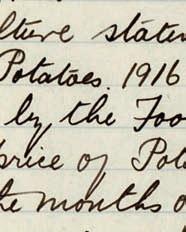 lture statem
Potatoes. 1916
by, the Foo
price of Pot
he months o